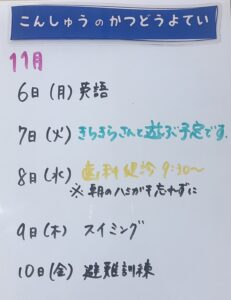 こんしゅうのかつどうよてい
11月
6日(月)英語
7日(火)きらきらさんと遊ぶ予定です.
8日(水)歯科健診 9:30〜
※朝のハミガキ忘れずに
9日(木)スイミング
10日(金)避難訓練